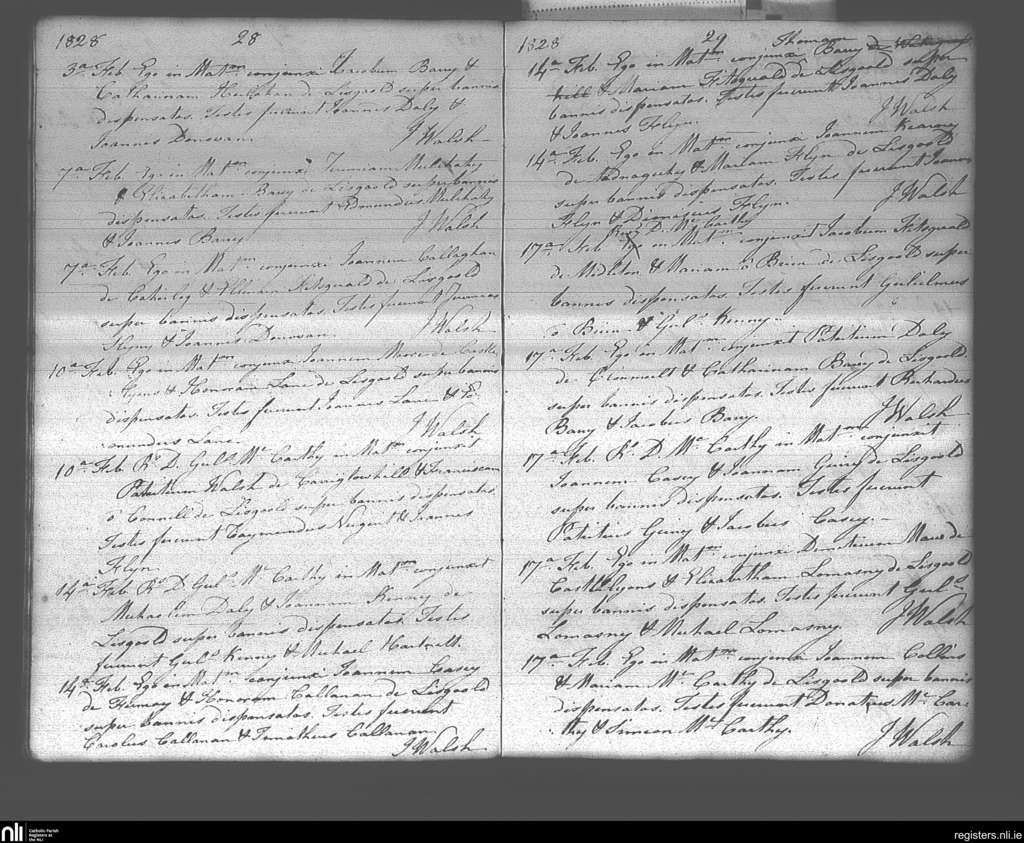 1828 28
3a Feb. Ego in Matm conjunxi Jacobum Barry &
Catharinam Hallahan de Lisgoold super bannis
dispensatas. Testes fuerunt Joannes Daly &
Joannes Donovan. J Walsh
7a Feb. Ego in Matm conjunxi Jeremiam Mulcahy
& Elizabetham Barry de Lisgoold super bannis
dispensatas. Testes fuerunt Edmundus Mulcahy
& Joannes Barry J Walsh
7a Feb. Ego in Matm conjunxi Joannem Callaghan
de & Fitzgerald de Lisgoold
super bannis dispensatas. Testes fuerunt
& Joannes Donovan. J Walsh
10a Feb. Ego in Matm conjunxi Joannem de Castle
lyons & Honoram Lane de Lisgoold super bannis
dispensatas. Testes fuerunt Joannes Lane & Ed
mundus Lane. J Walsh
10a Feb. Rs. D. Gull Mc Carthy in Matm conjunxit
Patritium Walsh de & Franciscam
ó Connell de Lisgoold super bannis dispensatas
Testes fuerunt Raymundus Nugent & Joannes
Flyn.
14a Feb. Rs D. Guls. Mc Carthy in Matm conjunxit
Michaelem Daly & Joannam Kenny de
Lisgoold super bannis dispensatas. Testes
fuerunt Guls Kenny & Michael Hartnett.
14a Feb. Ego in Matm conjunxi Joannem Casey
de Fermoy & Honoram Callanan de Lisgoold
super bannis dispensatas. Testes fuerunt
Carolus Callanan & Timotheus Callanan
J Walsh
1828 29
14a Feb. Ego in Matm conjunxi Thomam Barry de
hill & Mariam Fitzgerald de Lisgoold super
bannis dispensatas. Testes fuerunt Joannes Daly
& Joannes Flyn. J Walsh
14a Feb. Ego in Matm conjunxi Joannem Kearney
de & Mariam Flyn de Lisgoold
super bannis dispensatas. Testes fuerunt Joannes
Flyn & Dionysius Flyn. J Walsh
Rs. D. Mc Carthy
17a Feb. Ego in Matm conjunxit Jacobum Fitzgerald
de Midleton & Mariam ó Brien de Lisgoold super
bannis dispensatas. Testes fuerunt Gulielmus
ó Brien & Guls Kenny.
17a Feb. Ego in Matm conjunxi Patritium Daly
de & Catharinam Barry de Lisgoold
super bannis dispensatas. Testes fuerunt Richardus
Barry & Jacobus Barry. J Walsh
17a Feb. Rs. D Mc Carthy in Matm conjunxit
Joannem Casey & Joannam Guiny de Lisgoold
super bannis dispensatas. Testes fuerunt
Patritius Guiny & Jacobus Casey.
17a Feb. Ego in Matm conjunxi Demetrium de
Castlelyons & Elizabetham Lomasny de Lisgoold
super bannis dispensatas. Testes fuerunt Guls
Lomasny & Michael Lomasny. J Walsh
17a Feb. Ego in Matm conjunxi Joannem Collins
& Mariam Mc Carthy de Lisgoold super bannis
dispensatas. Testes fuerunt Donatus Mc Car
thy & Simeon Mc Carthy.
J Walsh
nli Catholic Parish
Registers at
the NLI
registers.nli.ie